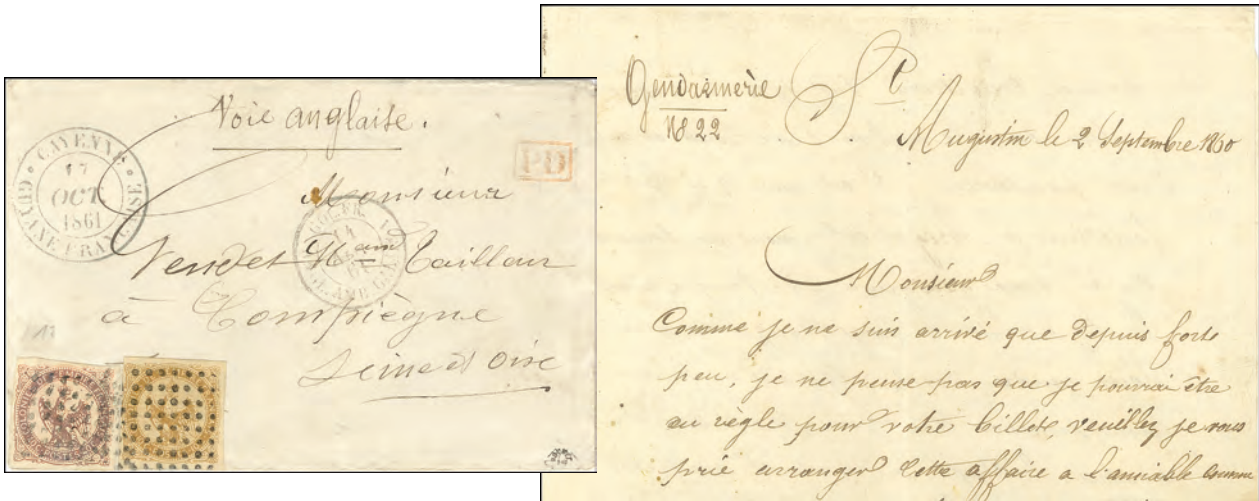 Voie anglaise.
CAYENNE
17
OCT
1861
GUYANE FRANCAISE
PD
Monsieur
Vendet Tailleur
à Compiègne
Seine et Oise
Gendarmerie
No 22
St
Augustin le 2 Septembre 1860
Monsieur
Comme je ne suis arrivé que depuis fort
peu, je ne pense pas que je pourrai être
en règle pour votre billet, veuillez je vous
prie arranger cette affaire a l'amiable comme